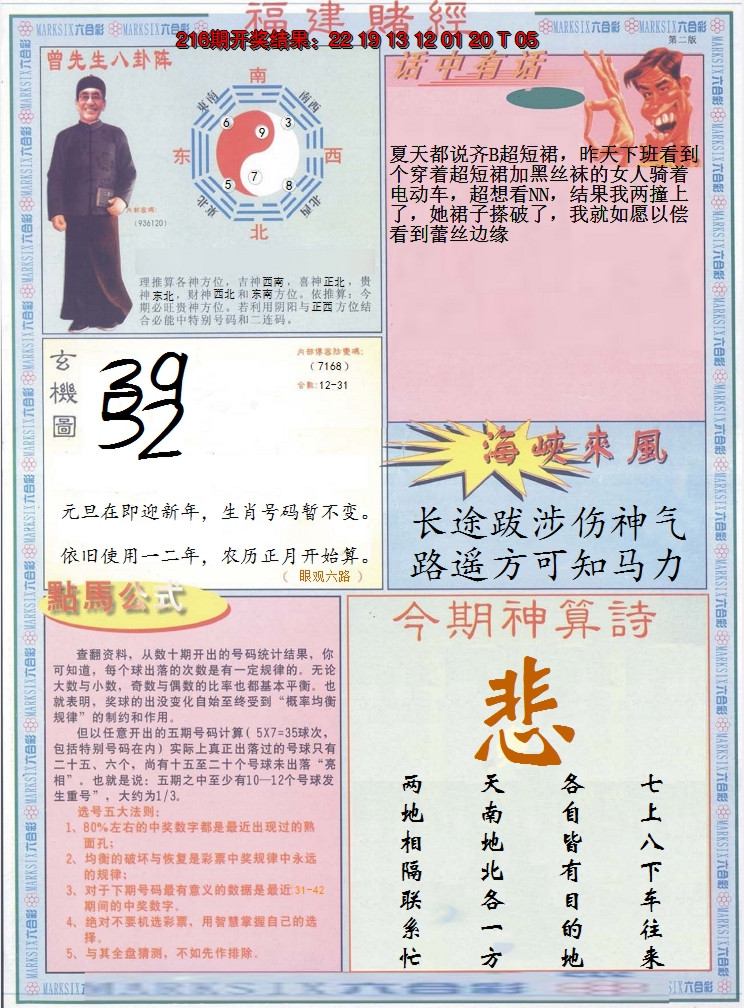 福建賭經
216期开奖结果：22 19 13 12 01 20 T 05
第二版
MARKSIX六合彩
曾先生八卦阵
南
东南
南西
东
西
东北
北西
北
6
9
3
5
7
8
内部密碼:
(936120)
理推算各神方位，吉神西南，喜神正北，贵
神东北，财神西北和东南方位。依推算：今
期必旺贵神方位。若利用阴阳与正西方位结
合必能中特别号码和二连码。
话中有话
夏天都说齐B超短裙，昨天下班看到
个穿着超短裙加黑丝袜的女人骑着
电动车，超想看NN，结果我两撞上
了，她裙子搽破了，我就如愿以偿
看到蕾丝边缘
玄機圖
39
52
(7168)
合数:12-31
元旦在即迎新年，生肖号码暂不变。
依旧使用一二年，农历正月开始算。
（ 眼观六路 ）
海峽來風
长途跋涉伤神气
路遥方可知马力
點馬公式
查翻资料，从数十期开出的号码统计结果，你
可知道，每个球出落的次数是有一定规律的。无论
大数与小数，奇数与偶数的比率也都基本平衡。也
就表明，奖球的出没变化自始至终受到“概率均衡
规律”的制约和作用。
但以任意开出的五期号码计算( 5X7=35球次，
包括特别号码在内）实际上真正出落过的号球只有
二十五、六个，尚有十五至二十个号球未出落“亮
相”。也就是说：五期之中至少有10—12个号球发
生重号”，大约为1/3。
选号五大法则：
1、80%左右的中奖数字都是最近出现过的熟
面孔；
2、均衡的破坏与恢复是彩票中奖规律中永远
的规律；
3、对于下期号码最有意义的数据是最近31-42
期间的中奖数字。
4、绝对不要机选彩票，用智慧掌握自己的选
择。
5、与其全盘猜测，不如先作排除。
今期神算詩
悲
七上八下车往来
各自皆有目的地
天南地北各一方
两地相隔联系忙